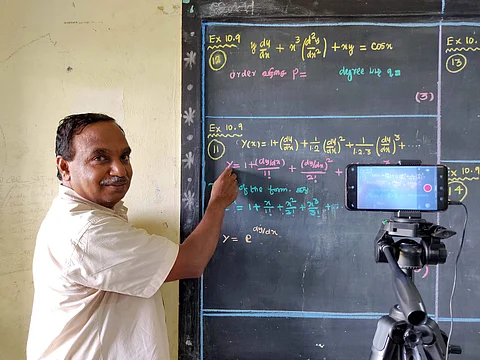 Ex 10.9
(12) y dy/dx + x³ (d²y/dx²) + xy = cosx
order P=
degree q=
(3)
Ex 10.9
(11) Y(x) = 1 + (dy/dx) + 1/1.2 (dy/dx)² + 1/1.2.3 (dy/dx)³ + ...
y = 1 + (dy/dx)/1! + (dy/dx)²/2! +
of the form
= 1 + x/1! + x²/2! + x³/3! +
y = e^dy/dx
Ex 10.
(13)
Ex 10.
(14)